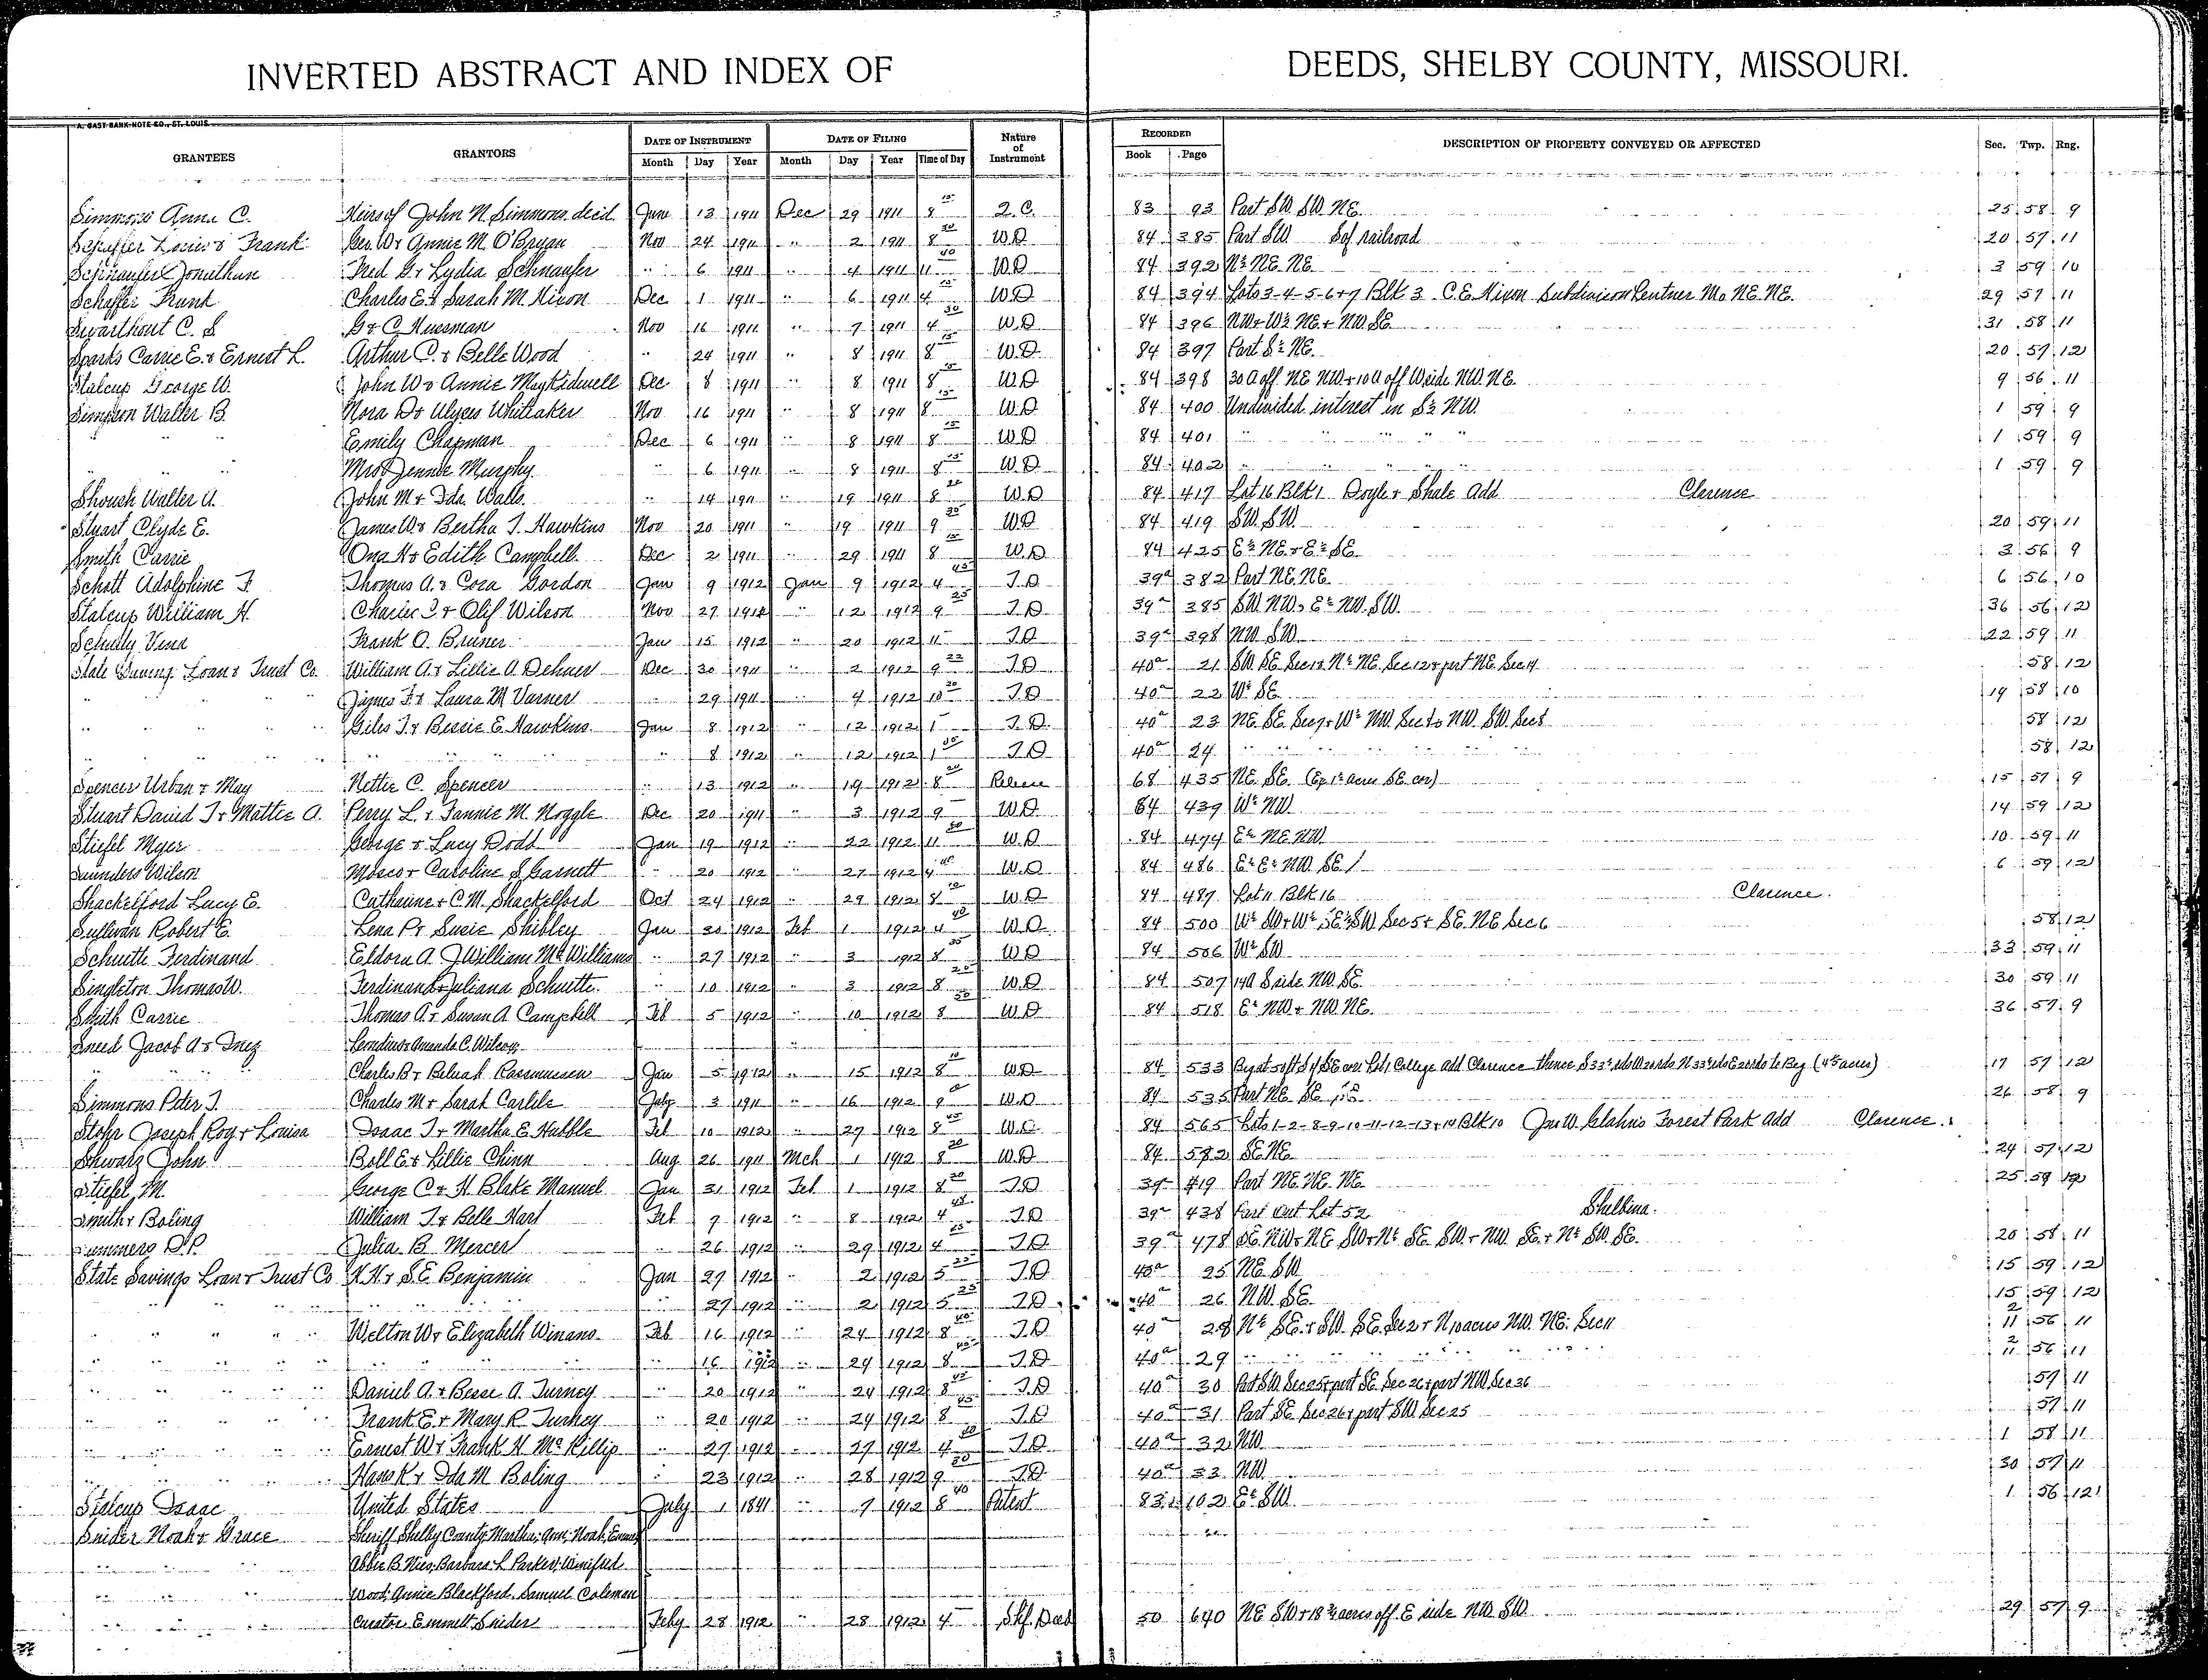 INVERTED ABSTRACT AND INDEX OF DEEDS, SHELBY COUNTY, MISSOURI.
A. GAST BANK NOTE CO., ST. LOUIS
GRANTEES GRANTORS DATE OF INSTRUMENT DATE OF FILING Nature of Instrument RECORDED DESCRIPTION OF PROPERTY CONVEYED OR AFFECTED Sec. Twp. Rng.
Month Day Year Month Day Year Time of Day Book Page
Simmons Anna C. Heirs of John N. Simmons decd 13 1911 Dec 29 1911 8 15 Q.C. 83 93 Part SW SW NE 25 58 9
Frank Geo W & Annie M. O'Bryan Nov 24 1911 " 2 1911 8 W.D 84 385 Part SW S of railroad 20 57 11
Schnaufer Jonathan Fred G & Lydia Schnaufer " 6 1911 " 4 1911 11 W.D 84 392 N½ NE NE 3 59 10
Schaffer Frank Charles E & Sarah M. Nixon Dec 1 1911 " 6 1911 4 W.D 84 394 Lots 3-4-5-6+7 Blk 3 C.E. Nixon Subdivision Lentner Mo NE NE. 29 57 11
Swarthout C. S G & C Nusman Nov 16 1911 " 7 1911 4 W.D 84 396 NW + W½ NE + NW SE 31 58 11
Sparks Carrie E. & Ernest L. Arthur C. & Belle Wood " 24 1911 " 8 1911 8 15 W.D. 84 397 Part S½ NE. 20 57 12
Stalcup George W. John W & Annie May Kidwell Dec 8 1911 " 8 1911 8 W.D 84 398 30 A off NE NW + 10 A off W side NW. NE. 9 56 11
Simpson Walter B. Nora D & Ulyses Whittaker Nov 16 1911 " 8 1911 8 15 W.D 84 400 Undivided interest in S½ NW. 1 59 9
" " Emily Chapman Dec 6 1911 " 8 1911 8 15 W.D 84 401 " " " " 1 59 9
" " Mrs Jennie Murphy " 6 1911 " 8 1911 8 15 W.D 84 402 " " " " 1 59 9
Shouse Walter A. John M & Ida Walls " 14 1911 " 19 1911 8 W.D 84 417 Lot 16 Blk 1 Doyle & Shale Add Clarence
Stuart Clyde E. James W & Bertha T. Hawkins Nov 20 1911 " 19 1911 9 W.D 84 419 SW. SW. 20 59 11
Smith Carrie Ona H & Edith Campbell Dec 2 1911 " 29 1911 8 W.D 84 425 E½ NE + E½ SE 3 56 9
Schott Adolphine F. Thomas A. & Cora Gordon Jan 9 1912 Jan 9 1912 4 45 T.D 39a 382 Part NE NE 6 56 10
Stalcup William H. Charles I & Olif Wilson Nov 27 " 12 1912 9 25 T.D 39a 385 SW. NW, E½ NW. SW. 36 56 12
Schully Vena Frank O. Bruner Jan 15 1912 " 20 1912 11 T.D 39a 398 NW SW 22 59 11
State Saving Loan & Trust Co. William A. & Lillie A. Dehner Dec 30 1911 " 2 1912 9 T.D 40a 21 SW. SE Sec 12 N½ NE Sec 12 & part NE. Sec 14 58 12
" " James F. & Laura M Varner " 29 1911 " 4 1912 10 T.D 40a 22 W½ SE 19 58 10
" " Giles T. & Bessie E. Hawkins. Jan 8 1912 " 12 1912 1 T.D. 40a 23 NE. SE. Sec 7 & W½ NW. Sec NW. SW. Sec 8 58 12
" " " 8 1912 " 12 1912 1 T.D 40a 24 " " 58 12
Spencer Urban & May Nettie C. Spencer " 13 1912 " 19 1912 8 Release 68 435 NE. SE. (Ex 1½ acres SE cor) 15 57 9
Stuart David T & Mattie A. Perry L. & Fannie M. Noggle Dec 20 1911 " 3 1912 9 W.D. 84 439 W½ NW. 14 59 12
Stiefel Myer George & Lucy Dodd Jan 19 1912 " 22 1912 11 W.D 84 474 E½ NE NW. 10 59 11
Saunders Wilson Mosco & Caroline S Garnett " 20 1912 " 27 1912 4 W.D 84 486 E½ E½ NW. SE 6 59 12
Shackelford Lucy E. Catharine & C.M. Shackelford Oct 24 1912 " 29 1912 8 W.D 84 487 Lot 11 Blk 16 Clarence.
Sullivan Robert E. Lena P. & Susie Shibley Jan 30 1912 Feb 1 1912 4 W.D 84 500 Sec 5 & SE. NE Sec 6 58 12
Schuette Ferdinand Eldora A. J William McWilliams " 27 1912 " 3 1912 8 W.D 84 506 W½ SW 33 59 11
Singleton Thomas W. Ferdinand & Juliana Schuette " 10 1912 " 3 1912 8 W.D 84 507 S side NW. SE. 30 59 11
Smith Carrie Thomas A. & Susan A Campbell Feb 5 1912 " 10 1912 8 W.D 84 518 E½ NW + NW. NE. 36 57 9
Sneed Jacob A & Inez Amanda C. Wilcox
Charles B & Beleah Rasmussen Jan 5 1912 " 15 1912 8 W.D 84 533 Lot 1 College Add Clarence thence to Beg 17 57 12
Simmons Peter T. Charles M & Sarah Carlile July 3 1911 " 16 1912 9 W.D 84 535 Part NE SE 26 58 9
Stohr Joseph Roy & Louisa Isaac T & Martha E. Hubble Feb 10 1912 " 27 1912 8 W.D 84 565 Lots 1-2-8-9-10-11-12-13+14 Blk 10 Forest Park Add Clarence.
Schwarz John Boll E & Lillie Chinn Aug 26 1911 Mch 1 1912 8 W.D 84 582 SE NE 24 57 12
Stiefel M. George C. & H. Blake Manuel Jan 31 1912 Feb 1 1912 8 T.D 39a 419 Part NE. NE. NE 25 59
Smith & Boling William T & Belle Hart Feb 7 1912 " 8 1912 4 T.D 39a 438 Part Out Lot 52 Shelbina.
Summers O.P. Julia B Mercer " 26 1912 " 29 1912 4 T.D 39a 478 SE. NW + NE SW + N½ SE. SW. + NW. SE. + N½ SW. SE. 20 58 11
State Savings Loan & Trust Co H.H. & S.E. Benjamin Jan 27 1912 " 2 1912 5 T.D 40a 25 NE. SW 15 59 12
" " " " " 27 1912 " 2 1912 5 T.D 40a 26 NW. SE. 15 59 12
" " " " Welton W & Elizabeth Winans Feb 16 1912 " 24 1912 8 T.D 40a 28 N½ SE. & SW. SE. Sec 2 & N 10 acres NW. NE. Sec 11 2 11 56 11
" " " " " 16 1912 " 24 1912 8 T.D 40a 29 " " 2 11 56 11
" " " " Daniel A. & Besse A. Turney " 20 1912 " 24 1912 8 T.D 40a 30 Part SW. Sec 25 & part SE. Sec 26 & part NW. Sec 36 57 11
" " " " Frank E. & Mary R. Turney " 20 1912 " 24 1912 8 T.D 40a 31 Part SE Sec 26 & part SW Sec 25 57 11
" " " " Ernest W & Frank H McKillip " 27 1912 " 27 1912 4 T.D 40a 32 NW 1 58 11
" " " " Hans K & Ida M Boling " 23 1912 " 28 1912 9 T.D 40a 33 NW 30 57 11
Stalcup Isaac United States July 1 1841 " 7 1912 8 40 Patent 83 102 E½ SW. 1 56 12
Snider Noah & Grace Sheriff Shelby County, Martha, Ann, Noah,
Abbie B. Barbara L Parker, Winifred
" " Wood, Annie Blackford, Samuel Coleman
" " Curator Emmett Snider Feby 28 1912 " 28 1912 4 Shf. Deed 50 640 NE SW + 18 acres off E side NW. SW 29 57 9